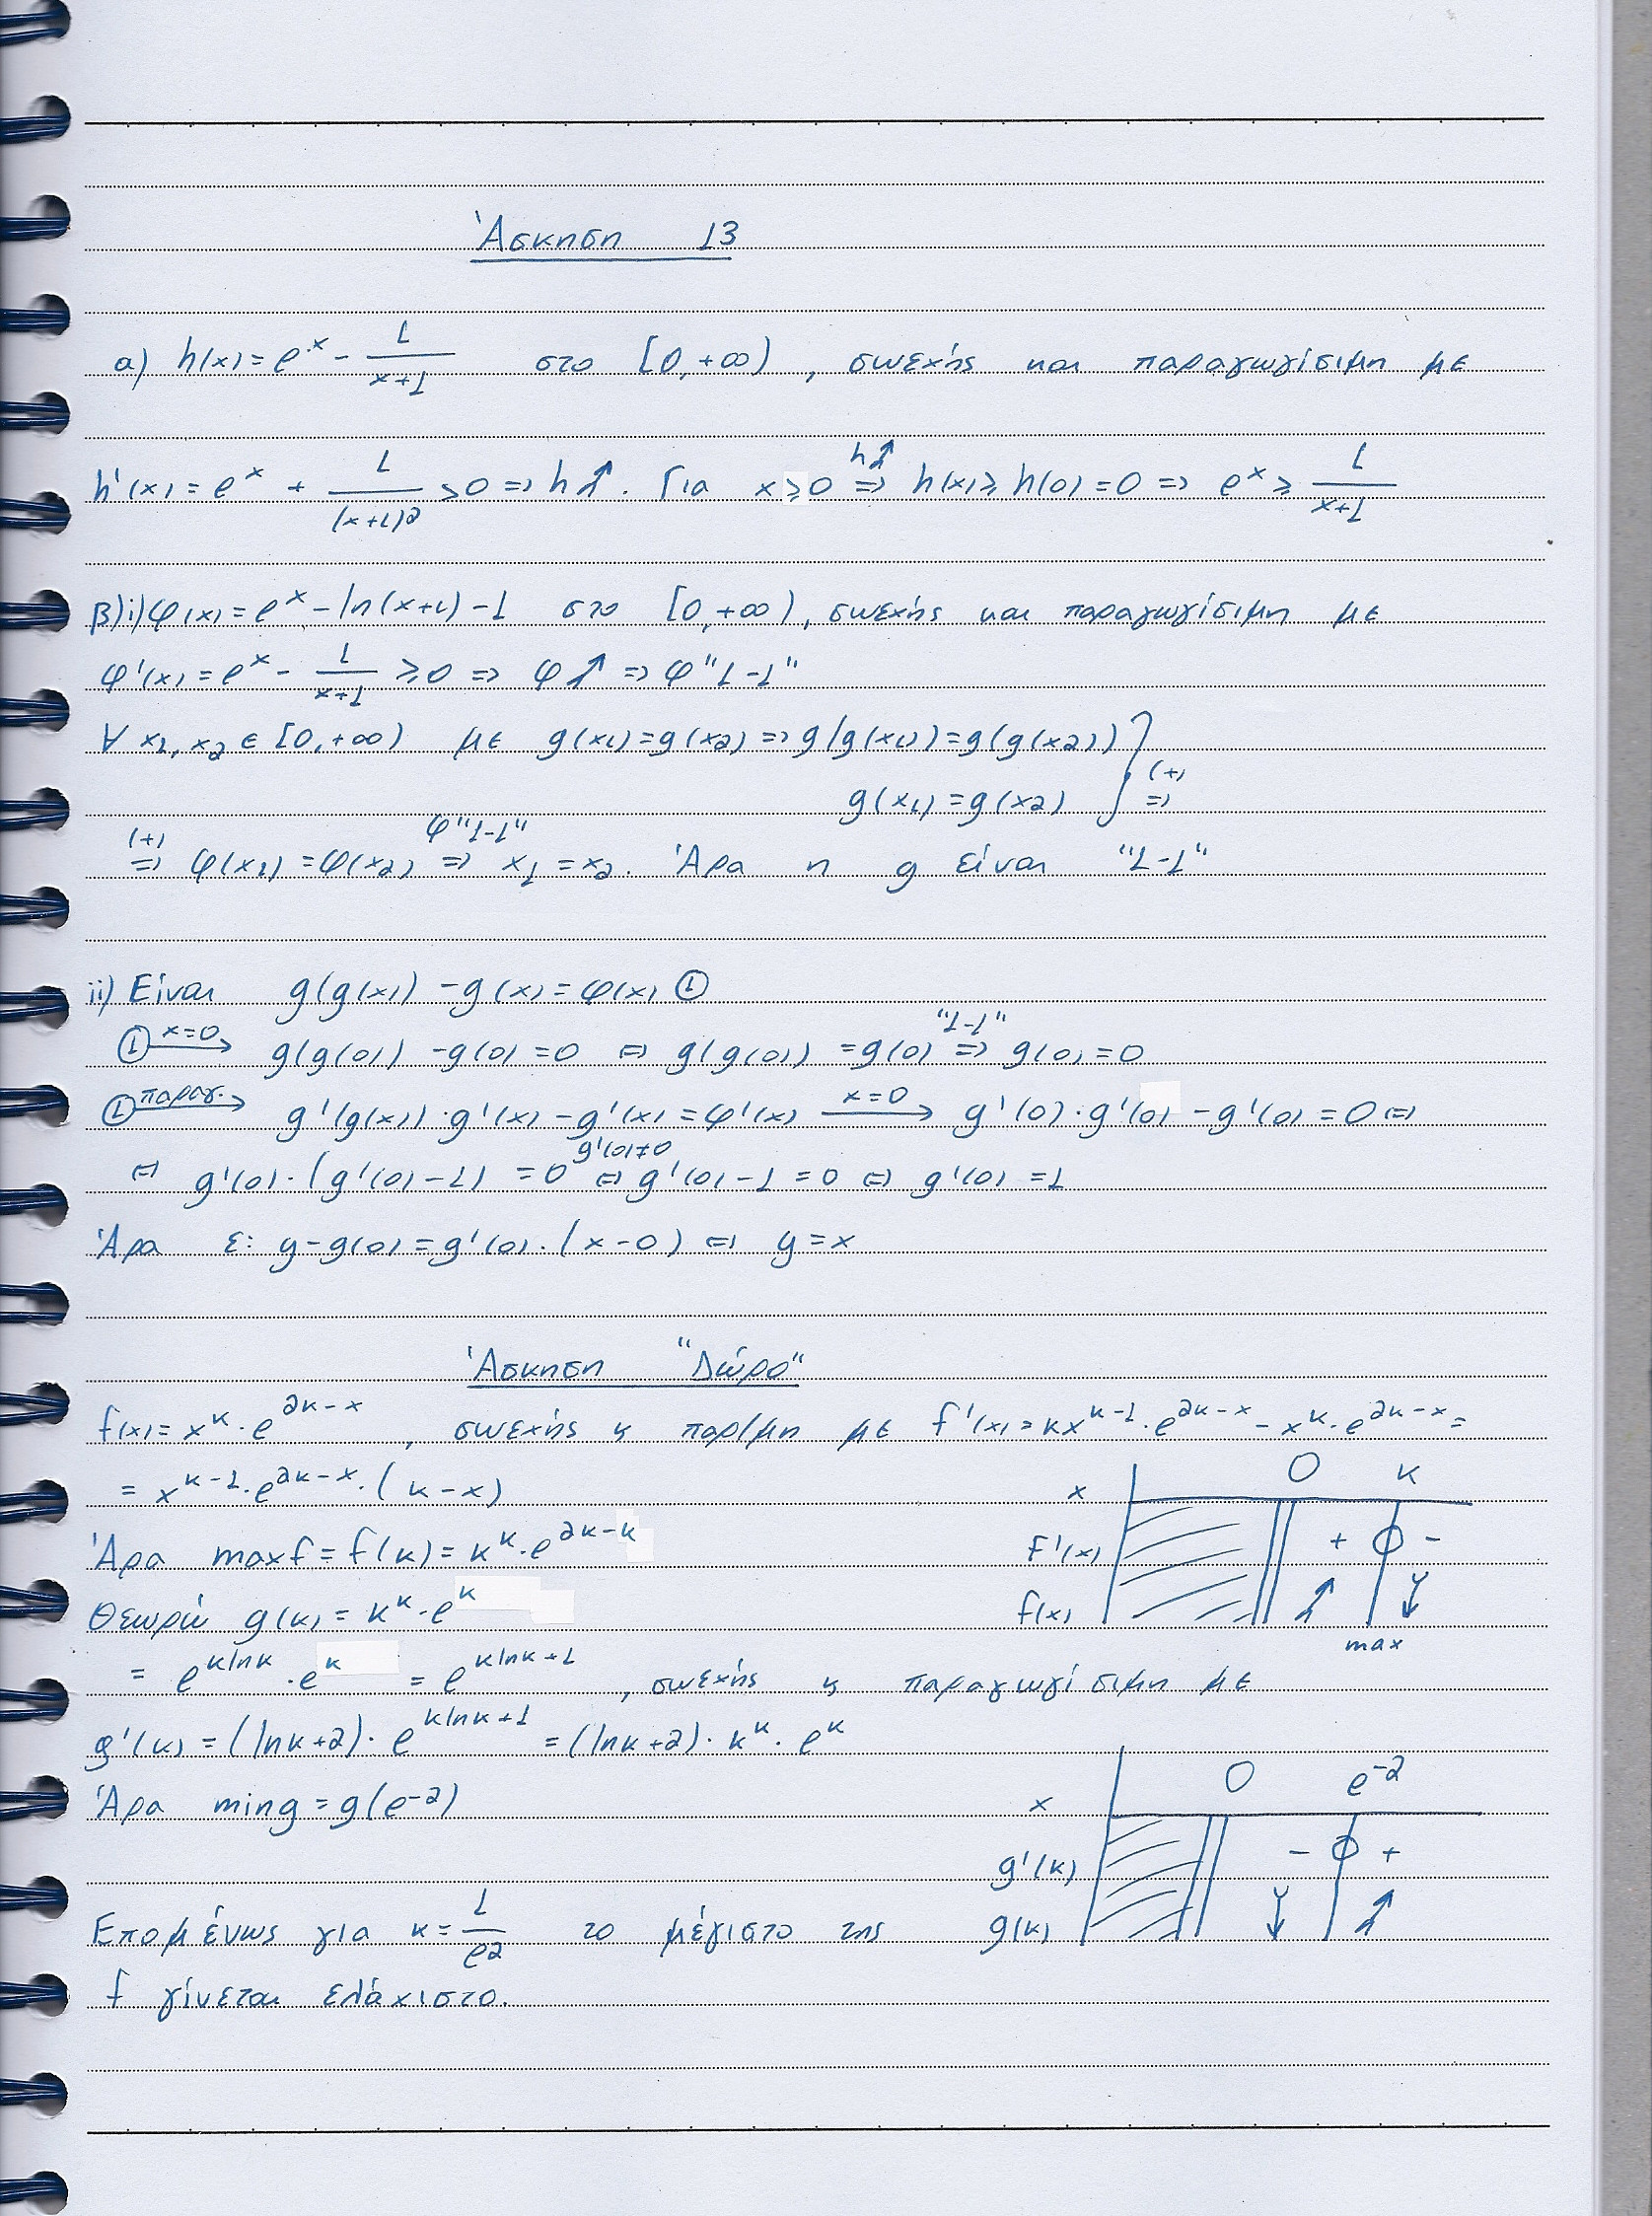 Άσκηση 13
α) h(x) = e^x - 1/(x+1) στο [0,+∞) , συνεχής και παραγωγίσιμη με
h'(x) = e^x + 1/(x+1)^2 >0 => h↑. Για x≥0 =>(h↑) h(x)≥h(0)=0 => e^x ≥ 1/(x+1)
β)i) φ(x) = e^x - ln(x+1) - 1 στο [0,+∞), συνεχής και παραγωγίσιμη με
φ'(x) = e^x - 1/(x+1) ≥0 => φ↑ => φ "1-1"
∀ x1, x2 ∈ [0,+∞) με g(x1)=g(x2) => g(g(x1))=g(g(x2)) }
g(x1)=g(x2) } (+) =>
(+) => φ(x1) = φ(x2) =>(φ"1-1") x1 = x2. Άρα η g είναι "1-1"
ii) Είναι g(g(x)) - g(x) = φ(x) ①
① x=0 → g(g(0)) - g(0) = 0 <=> g(g(0)) = g(0) =>("1-1") g(0)=0
① παραγ. → g'(g(x))·g'(x) - g'(x) = φ'(x) x=0 → g'(0)·g'(0) - g'(0) = 0 <=>
<=> g'(0)·(g'(0)-1) = 0 <=>(g'(0)≠0) g'(0)-1 = 0 <=> g'(0) = 1
Άρα ε: y-g(0) = g'(0)·(x-0) <=> y=x
Άσκηση "Δώρο"
f(x) = x^κ · e^(2κ-x) , συνεχής κ παρ/μη με f'(x) = κx^(κ-1)·e^(2κ-x) - x^κ·e^(2κ-x) =
= x^(κ-1)·e^(2κ-x)·(κ-x)
x 0 κ
Άρα maxf = f(κ) = κ^κ·e^(2κ-κ)
f'(x) + 0 -
Θεωρώ g(κ) = κ^κ·e^κ
f(x) ↑ ↓
max
= e^(κlnκ)·e^κ = e^(κlnκ+1) , συνεχής κ παραγωγίσιμη με
g'(κ) = (lnκ+2)·e^(κlnκ+1) = (lnκ+2)·κ^κ·e^κ
Άρα ming = g(e^-2)
x 0 e^-2
g'(κ) - 0 +
g(κ) ↓ ↑
Επομένως για κ = 1/e^2 το μέγιστο της
f γίνεται ελάχιστο.